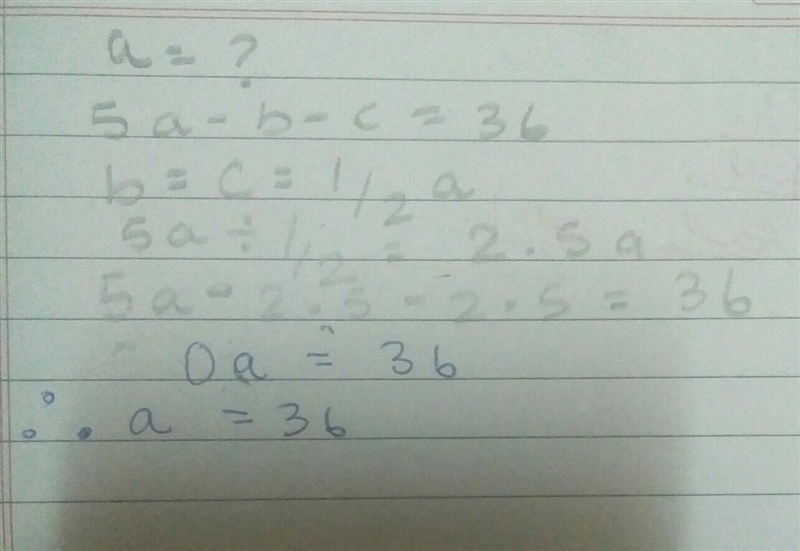 a = ?
5a - b - c = 36
b = c = 1/2 a
5a ÷ 1/2 = 2.5a
5a - 2.5 - 2.5 = 36
0a = 36
∴ a = 36